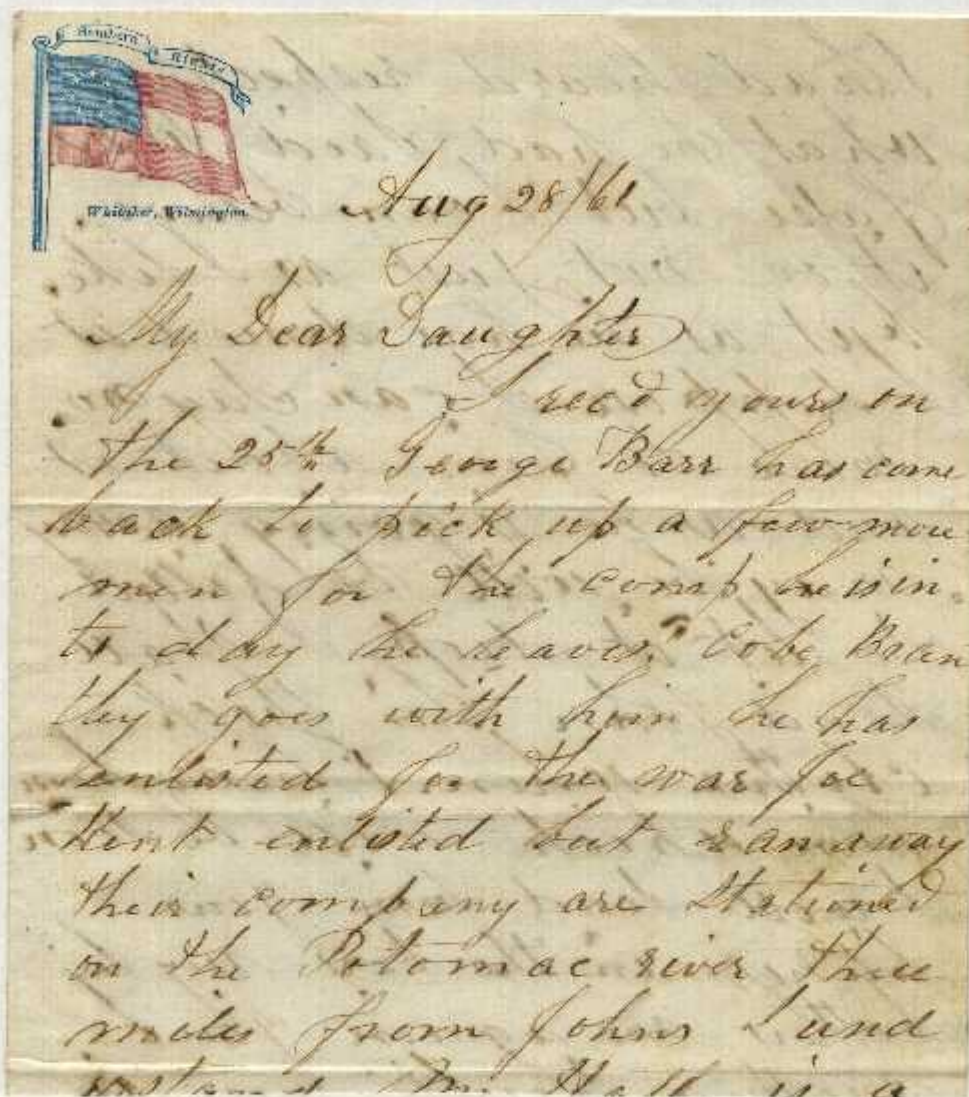 Southern Rights
Whitaker, Wilmington.
Aug 28/61
My Dear Daughter
I recd yours on
the 25th George Barr has come
back to pick up a few more
men for the comp he is in
to day he leaves. Cobe Bran
tley goes with him he has
enlisted for the war Joe
Kent enlisted but ran away
their company are Stationed
on the Potomac river three
miles from Johns I und
erstand Mr Hall is a